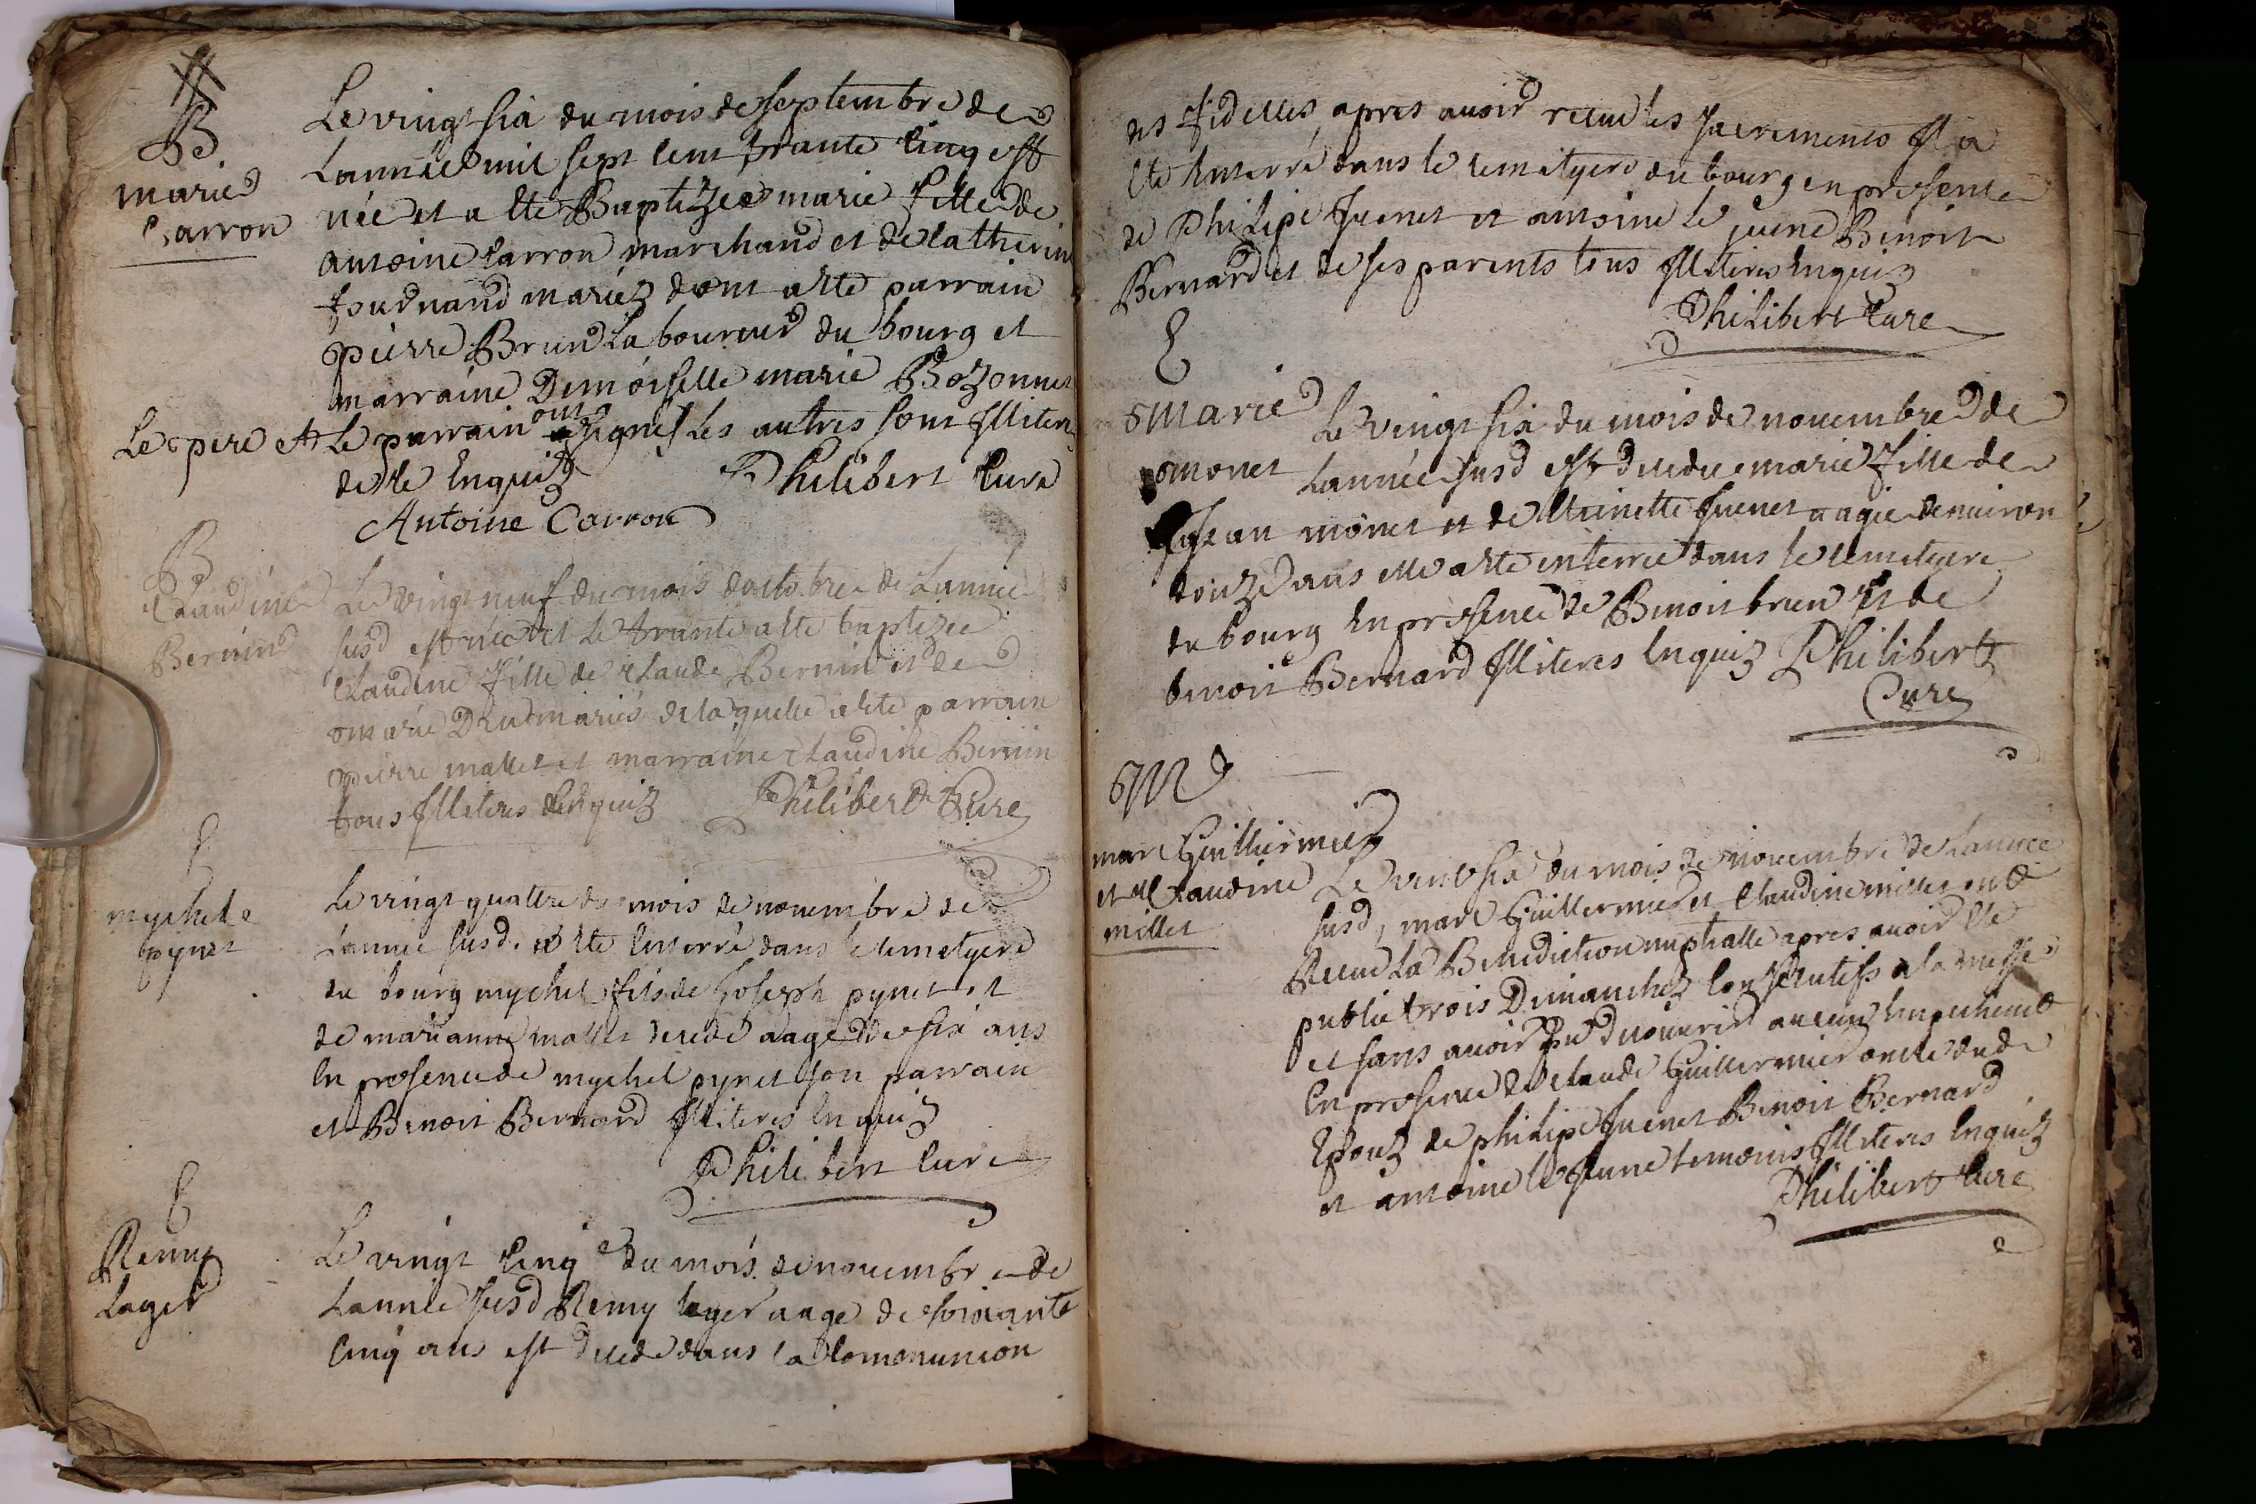 B
marie
Carron
Le vingt six du mois de septembre de
Lannée mil sept cent trante cinq est
née et a ete Baptizee marie fille de
antoine carron marchand et de catherine
mariéz dont a ete parrain
pierre Brun Laboureur du bourg et
marraine Demoiselle marie Bozonnet
Le pere et Le parrain ont signes Les autres sont Illiter
de ce Enquiz Philibert Cure
Antoine Carron
B
Claudine
Bernin
Le vingt neuf du mois doctobre de Lannee
susd est née et Le trante a ete baptizee
Claudine fille de Claude Bernin et de
marie Dru mariés de laquelle a ete parrain
pierre mallet et marraine Claudine Bernin
tous Illiteres Enquiz Philibert Cure
E
mychel
pynet
Le vingt quattre du mois de novembre de
Lannee susd. a ete Enterré dans le cemetyere
du bourg mychel fils de Joseph pynet et
de marianne mallet decedé aagé de six ans
En presence de mychel pynet son parrain
et Benoit Bernard Illiteres Enquiz
Philibert Cure
E
Remy
Lager
Le vingt cinq du mois de novembre de
Lannée susd Remy lager aage de soixante
cinq ans est decede dans la comonunion
des fidelles, apres avoir receu les sacrements Il a
ete Enterré dans le cemetyere du bourg en presence
de Philipe Juenet et antoine le jeune Benoit
Bernard et de ses parents tous Illiteres Enquiz
Philibert Cure
E
Marie
monet
Le vingt six du mois de novembre de
Lannée susd est decedee marie fille de
Jean monet et de Juenet aagée denviron
douze ans elle a ete enterree dans le cemetyere
du bourg En presence de Benoit brun et de
benoit Bernard Illiteres Enquiz Philibert
Cure
M
marc Guilliermier
et Claudine
millet
Le vint six du mois de novembre de Lannee
susd, marc Guillermier et Claudine millet ont
Receu La Benediction nuptialle apres avoir ete
publie trois Dimanchez consecutifs a la messe
et sans avoir pu decouvrir aucun Empechemt
En presence de Claude Guillermier oncle dud
Epouz de philipe Juenet Benoit Bernard
et antoine le Jeune temoins Illiteres Enquiz
Philibert Cure